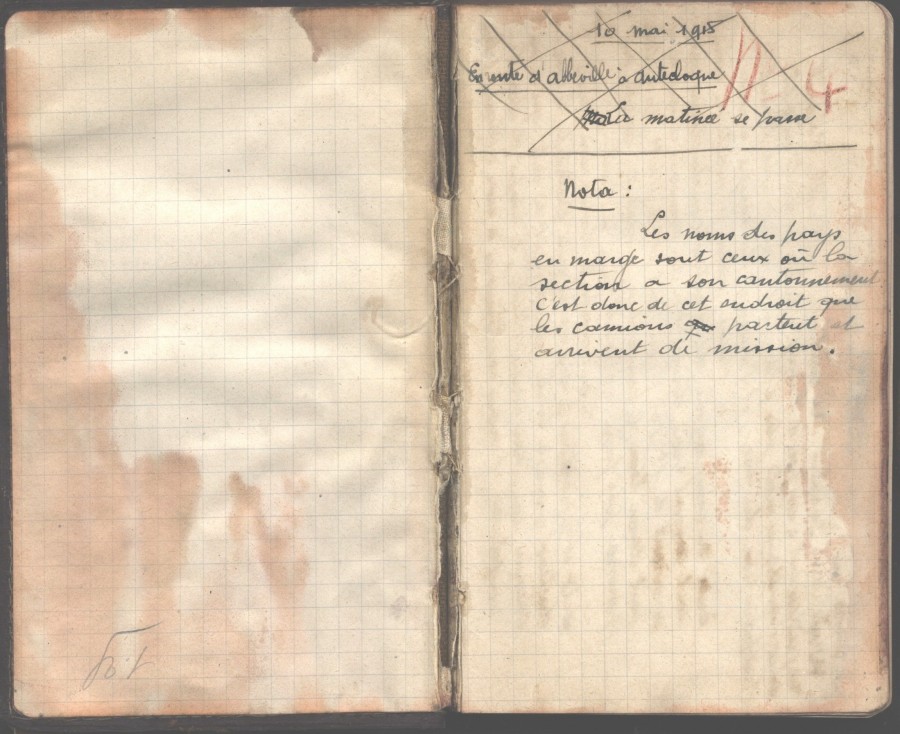 10 mai 1918
En route d'abbeville à autecloque
La matinée se passe
N- 4
Nota :
Les noms des pays
en marge sont ceux où la
section a son cantonnement
C'est donc de cet endroit que
les camions partent et
arrivent de mission.